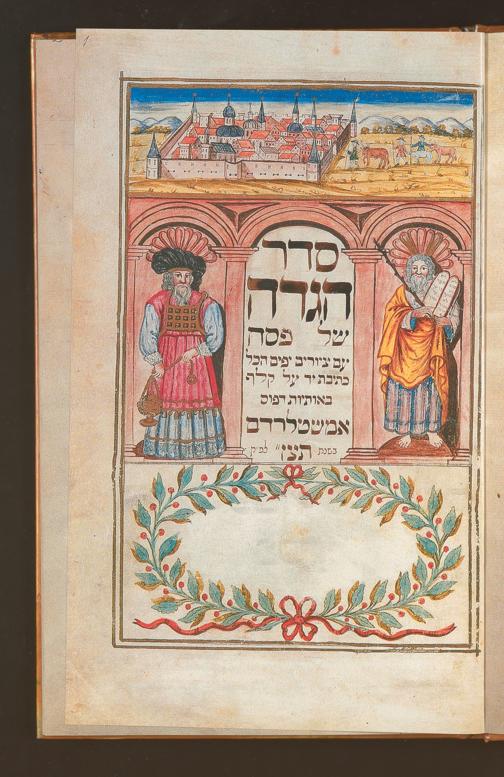 סדר
הגדה
של פסח
עם ציורים יפים הכל
כתיבת יד על קלף
באותיות דפוס
אמשטלרדם
בשנת תצ״ו לפ״ק